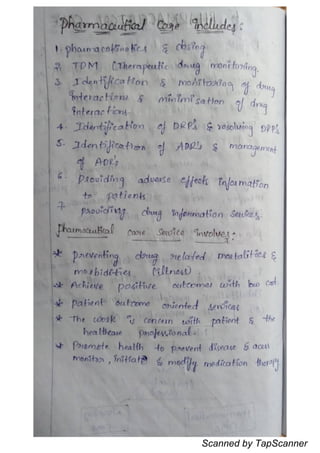 Pharmaceutical Care includes:
1. pharmacokinetics & dosing
2. TDM (Therapeutic drug monitoring
3. Identification & monitoring of drug
interactions & minimisation of drug
interaction
4. Identification of DRP's & resolving DRP's
5. Identification of ADR's & management
of ADR's
6. Providing adverse effects information
to patients
7. providing drug information services.
Pharmaceutical care service involves:
* preventing drug related mortalities &
morbidities (illness)
* Achieve positive outcomes with low cost
* patient outcome oriented services
* The work is concern with patient & the
healthcare professional.
* Promote health to prevent disease & acess
monitor, initiate & modify medication therapy
Scanned by TapScanner